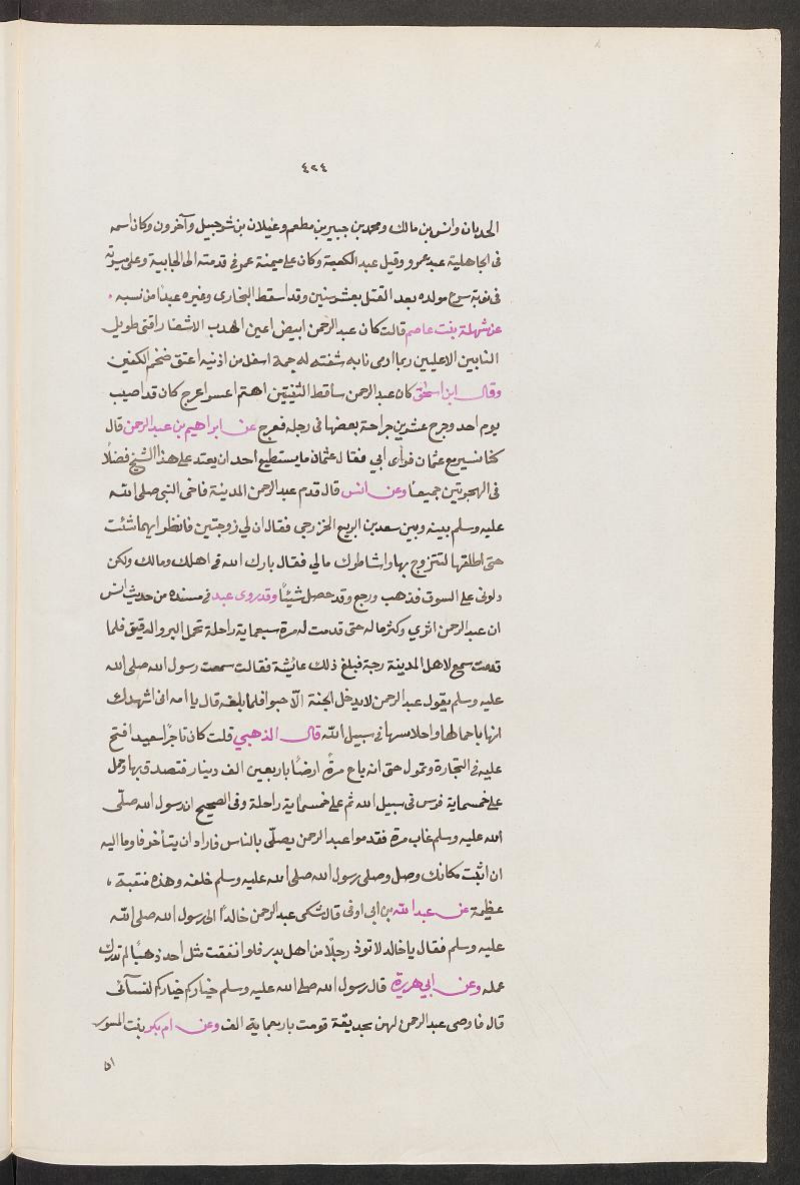 ٤٢٤
الحدثان وانس بن مالك ومحمد بن جبير بن مطعم وغيلان بن شرحبيل وآخرون وكان اسمه
فى الجاهلية عبد عمرو وقيل عبد الكعبة وكان على ميمنة عمر فى قدمته الى الجابية وعلى ميسرته
فى نوبة سرغ مولده بعد الفيل بعشر سنين وقد اسقط البخارى وغيره عبدًا من نسبه
عن سهلة بنت عاصم قالت كان عبد الرحمن ابيض اعين اهدب الاشفار اقنى طويل
النابين الاعليين ربما ادمى نابه شفته له جمة اسفل من اذنيه اعنق ضخم الكفين
وقال ابن اسحق كان عبد الرحمن ساقط الثنيتين اهتم اعسر اعرج كان قد اصيب
يوم احد وجرح عشرين جراحة بعضها فى رجله فعرج عن ابراهيم بن عبد الرحمن قال
كنا نسير مع عثمان فرأى أبي فقال عثمان ما يستطيع احد ان يعتد على هذا الشيخ فضلًا
فى الهجرتين جميعًا وعن انس قال قدم عبد الرحمن المدينة فاخى النبي صلى الله
عليه وسلم بينه وبين سعد بن الربيع الخزرجي فقال ان لي زوجتين فانظر ايهما شئت
حتى اطلقها لتتزوج بها واشاطرك مالي فقال بارك الله فى اهلك ومالك ولكن
دلونى على السوق فذهب ورجع وقد حصل شيئًا وقد روى عبد فى مسنده من حديث انس
ان عبد الرحمن اثرى وكثر ماله حتى قدمت له مرة سبعماية راحلة تحمل البر والدقيق فلما
قدمت سمع لاهل المدينة رجة فبلغ ذلك عائشة فقالت سمعت رسول الله صلى الله
عليه وسلم يقول عبد الرحمن لا يدخل الجنة الّا حبوا فلما بلغه قال يا امه انى اشهدك
انها باحمالها واحلاسها فى سبيل الله قال الذهبي قلت كان تاجرًا سعيدا فتح
عليه فى التجارة وتمول حتى انه باع مرة ارضًا باربعين الف دينار فتصدق بها وحمل
على خمسماية فرس فى سبيل الله ثم على خمسماية راحلة وفى الصحيح ان رسول الله صلّى
الله عليه وسلم غاب مرة فقدموا عبد الرحمن يصلّى بالناس فاراد ان يتأخر فاوما اليه
ان اثبت مكانك وصل وصلى رسول الله صلى الله عليه وسلم خلفه وهذه منقبة
عظيمة عن عبد الله بن ابى اوفى قال شكى عبد الرحمن خالدًا الى رسول الله صلى الله
عليه وسلم فقال يا خالد لا توذ رجلًا من اهل بدر فلو انفقت مثل احد ذهبًا لم تدرك
عمله وعن ابي هريرة قال رسول الله صلى الله عليه وسلم خياركم خياركم لنسآئى
قال فاوصى عبد الرحمن لهن بحديقة قومت باربعماية الف وعن ام بكر بنت المسور
ان